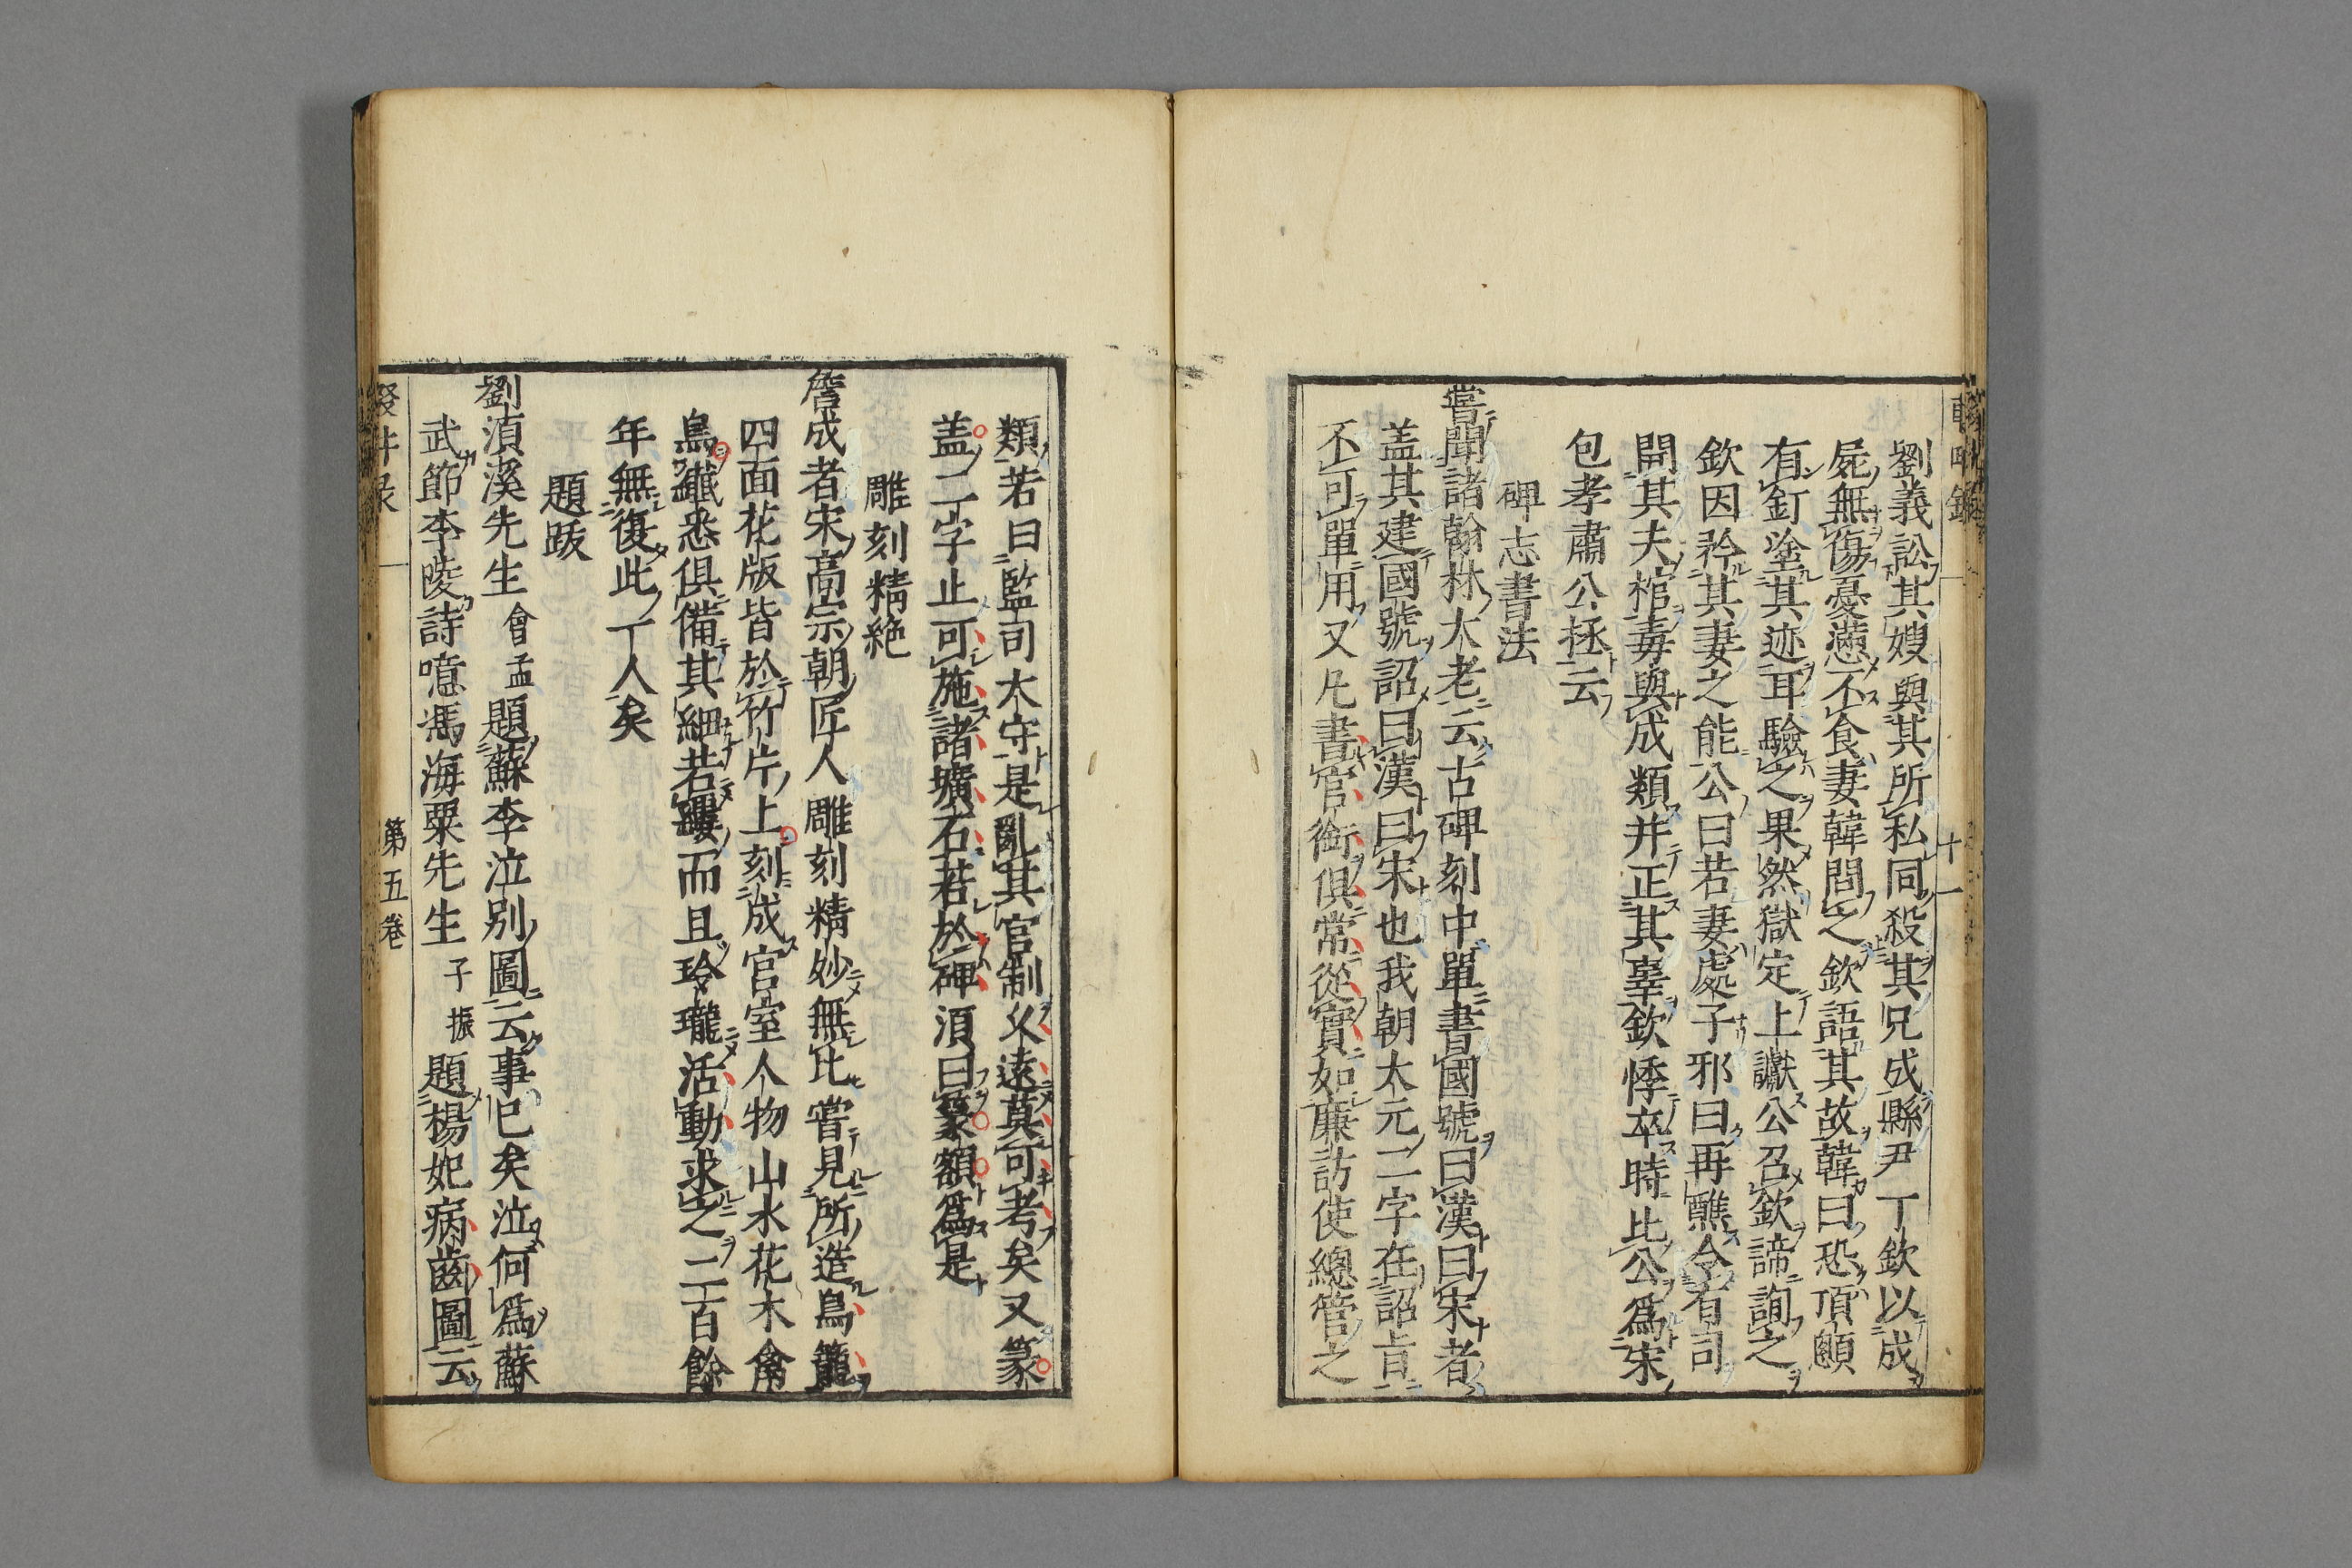 十一
劉義訟其嫂與其所私同殺其兄成縣尹丁欽以成
屍無傷憂懣不食妻韓問之欽語其故韓曰恐頂顖
有釘塗其迹耳驗之果然獄定上讞公召欽諦詢之
欽因矜其妻之能公曰若妻處子邪曰再醮令有司
開其夫棺毒與成類并正其辜欽悸卒時比公爲宋
包孝肅公拯云
碑志書法
嘗聞諸翰林太老云古碑刻中單書國號曰漢曰宋者
盖其建國號詔曰漢曰宋也我朝太元二字在詔旨
不可單用又凡書官銜俱常從實如廉訪使總管之
類若曰監司太守是亂其官制乆遠莫可考矣又篆
盖二字止可施諸壙石若於碑須曰篆額爲是
雕刻精絶
詹成者宋高宗朝匠人雕刻精妙無比嘗見所造鳥籠
四面花版皆於竹片上刻成官室人物山水花木禽
鳥纎悉俱備其細若縷而且玲瓏活動求之二百餘
年無復此一人矣
題跋
劉湏溪先生會孟題蘇李泣别圖云事已矣泣何爲蘇
武節李陵詩噫馮海粟先生子振題楊妃病齒圖云
第五巻